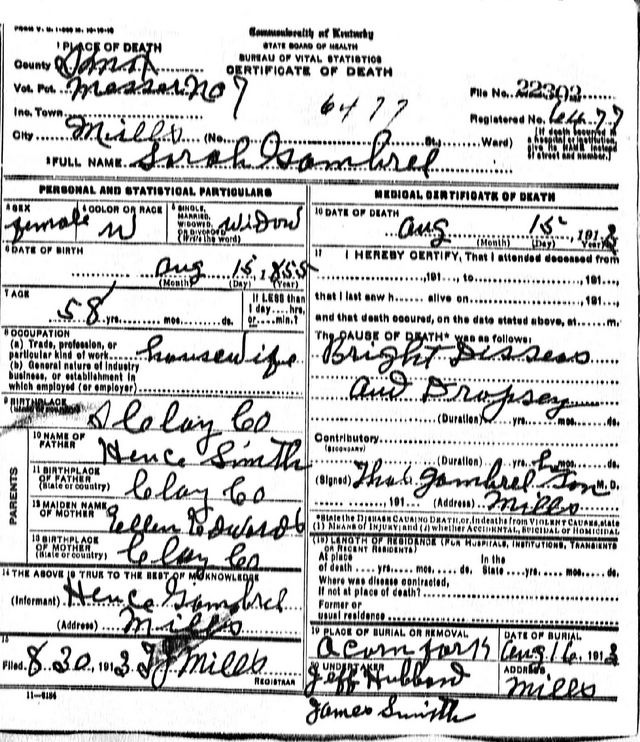 FORM V. S. 1-
Commonwealth of Kentucky
STATE BOARD OF HEALTH
BUREAU OF VITAL STATISTICS
CERTIFICATE OF DEATH
1 PLACE OF DEATH
County
Vot. Pct. Messer No 7
Inc. Town
City Mills (No. St., Ward)
File No. 22302
6477
Registered No. 6477
[If death occurred in a hospital or institution, give its NAME instead of street and number.]
2 FULL NAME Sarah Gambrel
PERSONAL AND STATISTICAL PARTICULARS
3 SEX female
4 COLOR OR RACE W
5 SINGLE, MARRIED, WIDOWED, OR DIVORCED (Write the word) widow
6 DATE OF BIRTH Aug 15, 1855
(Month) (Day) (Year)
7 AGE 58 yrs. mos. ds.
If LESS than 1 day ....hrs. or .... min.?
8 OCCUPATION
(a) Trade, profession, or particular kind of work housewife
(b) General nature of industry business, or establishment in which employed (or employer)
9 BIRTHPLACE
Clay Co
PARENTS
10 NAME OF FATHER Hence Simth
11 BIRTHPLACE OF FATHER (State or country) Clay Co
12 MAIDEN NAME OF MOTHER Ellen Edwards
13 BIRTHPLACE OF MOTHER (State or country) Clay Co
14 THE ABOVE IS TRUE TO THE BEST OF MY KNOWLEDGE
(Informant) Hence Gambrel
(Address) Mills
15
Filed 8 20, 1913 Mills
REGISTRAR
11-5184
MEDICAL CERTIFICATE OF DEATH
16 DATE OF DEATH Aug 15, 1913
(Month) (Day) (Year)
17 I HEREBY CERTIFY, That I attended deceased from
, 191..., to , 191...,
that I last saw h.... alive on , 191...,
and that death occured, on the date stated above, at m.
The CAUSE OF DEATH* was as follows:
Bright Diseas
and Dropsey
(Duration) yrs. mos. ds.
Contributory
(SECONDARY)
(Duration) yrs. mos. ds.
(Signed) Thos Gambrel Son M. D.
, 191 (Address) Mills
*State the DISEASE CAUSING DEATH, or, in deaths from VIOLENT CAUSES, state (1) MEANS OF INJURY; and (2) whether ACCIDENTAL, SUICIDAL or HOMICIDAL.
(18) LENGTH OF RESIDENCE (FOR HOSPITALS, INSTITUTIONS, TRANSIENTS OR RECENT RESIDENTS)
At place of death yrs. mos. ds. In the State yrs. mos. ds.
Where was disease contracted, if not at place of death?
Former or usual residence
19 PLACE OF BURIAL OR REMOVAL Acorn fork
DATE OF BURIAL Aug 16, 1913
20 UNDERTAKER Jeff Hubbard
ADDRESS Mills
James Smith